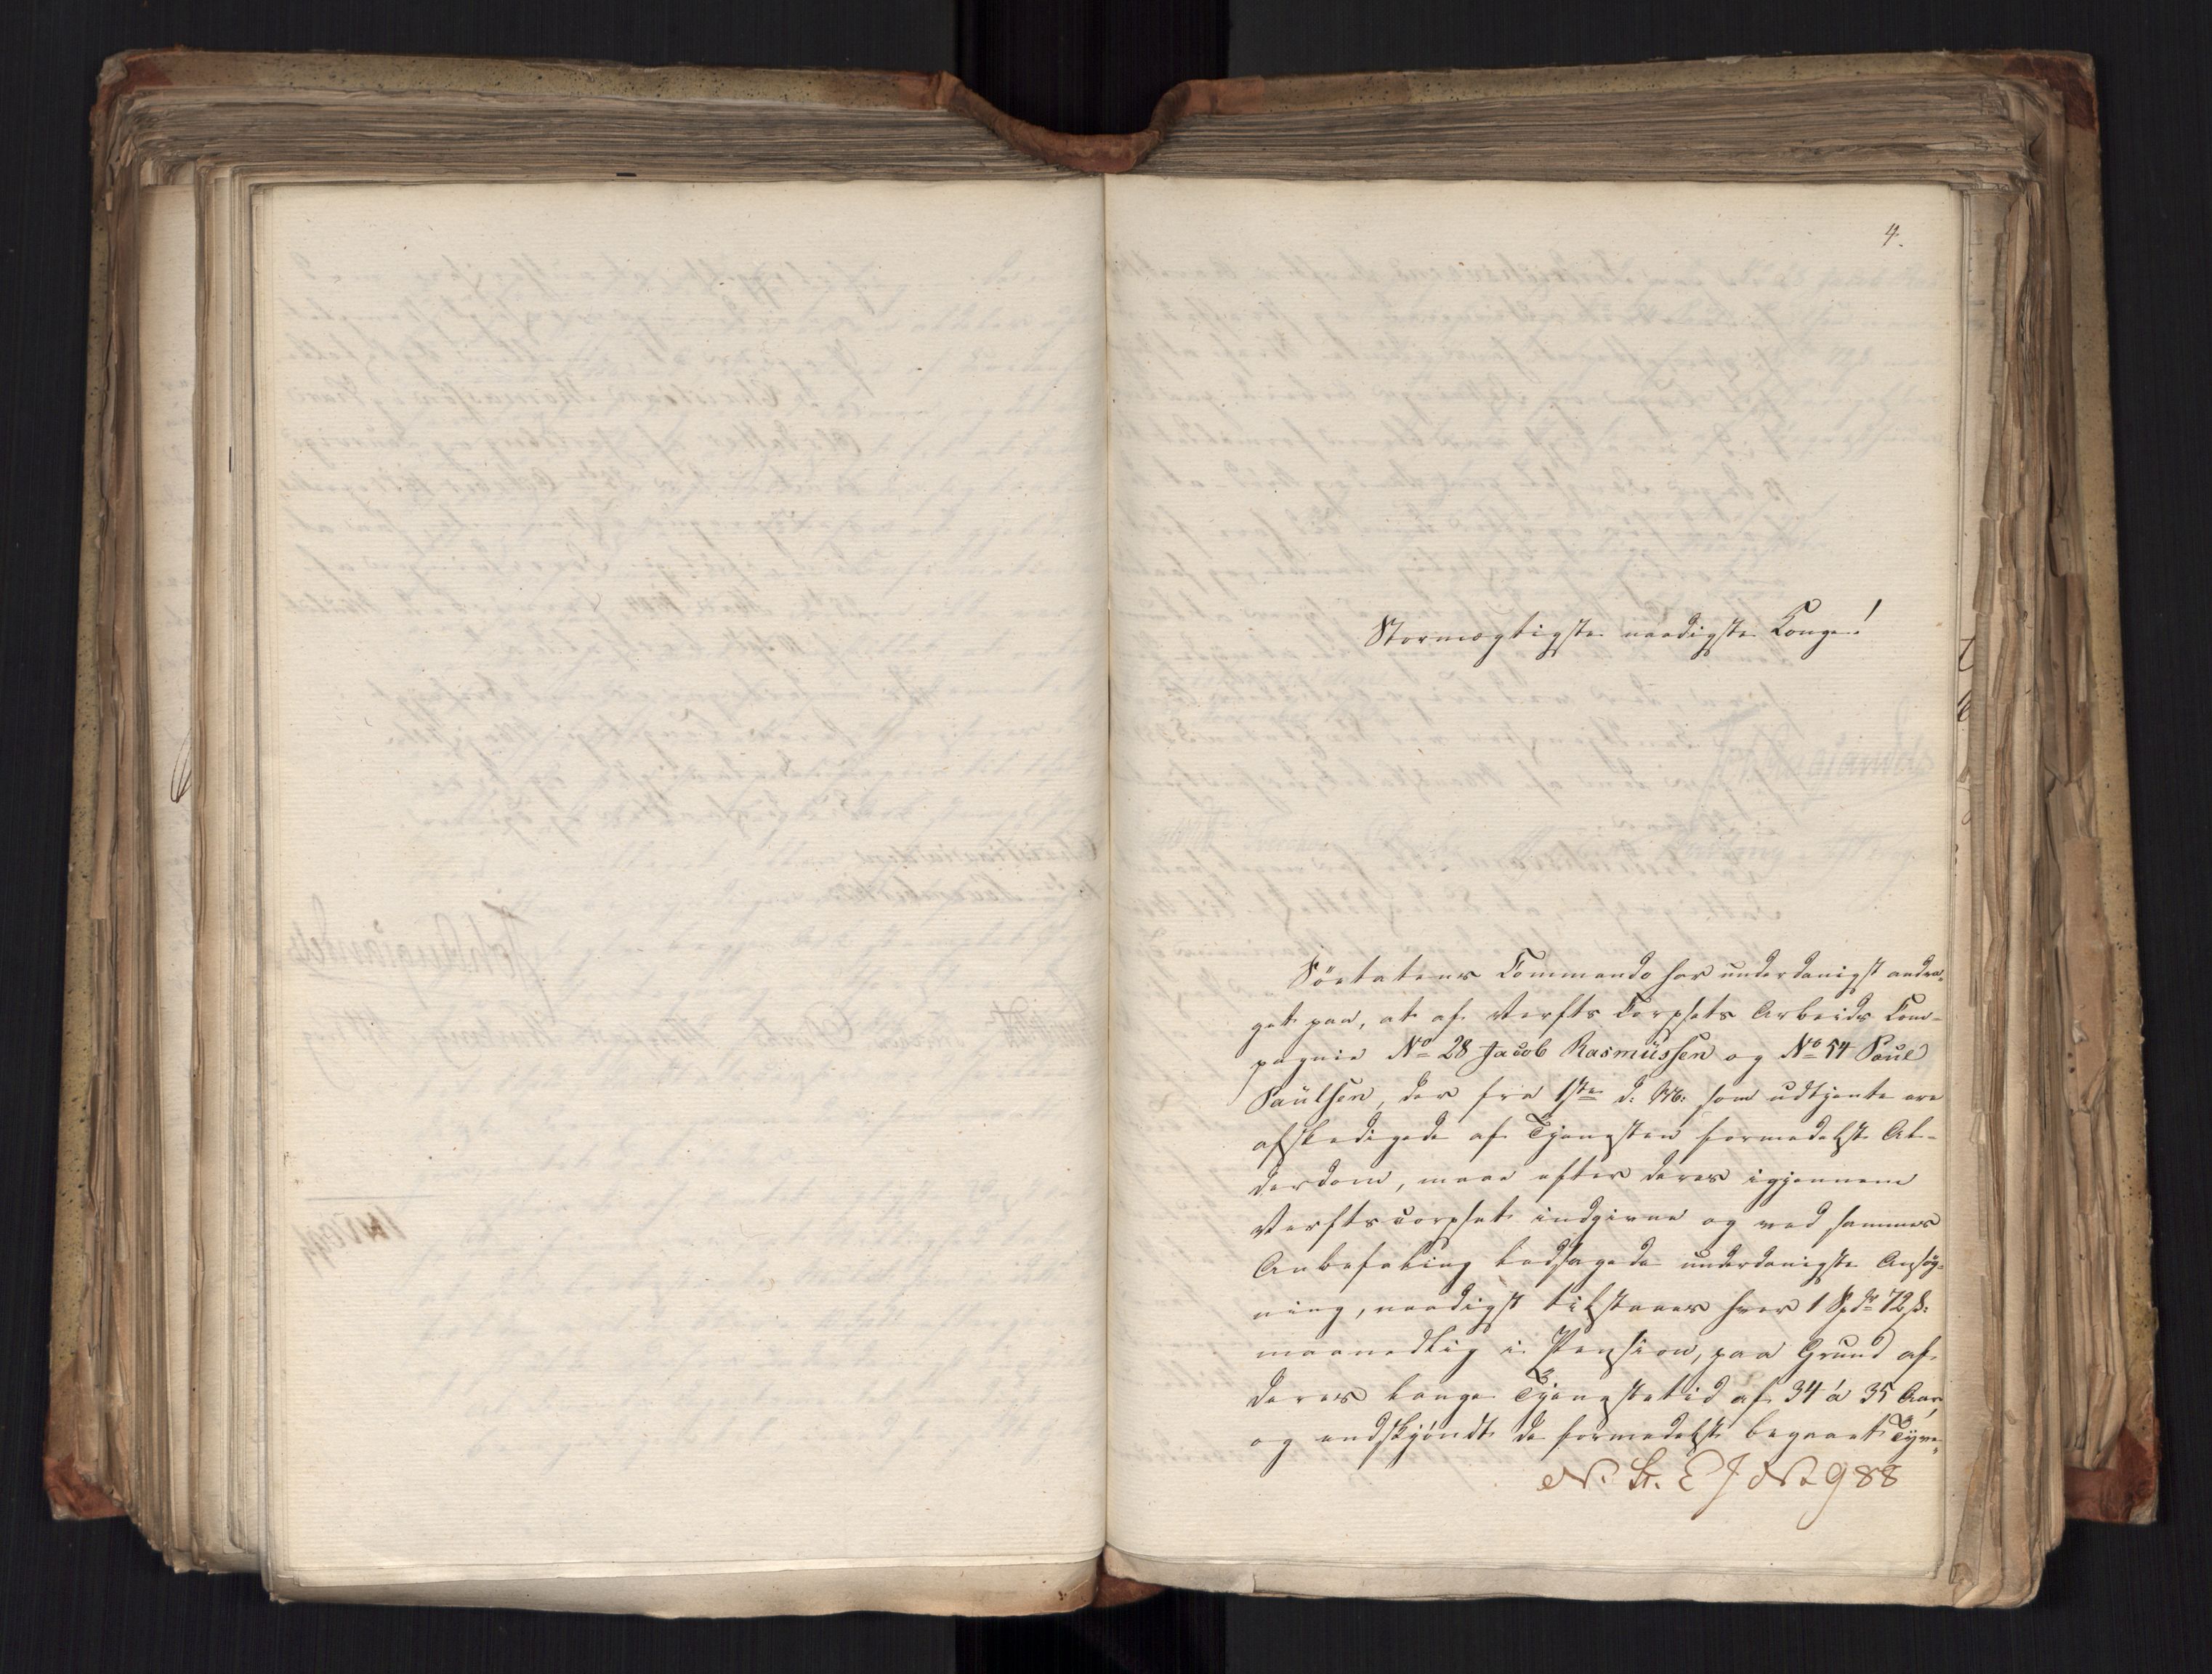 4.
Stormægtigste naadigste Konge!
Söetatens Commando har underdanigst andra-
get paa, at af Verfts Corpsets Arbeids Com-
pagnie No 28 Jacob Rasmüssen og No 54 Poul
Paülsen, der fra 1ste d: M: som udtjente ere
afskedigede af Tjenesten formedelst Al-
derdom, maae efter deres igjennem
Verftscorpset indgivne og med sammes
Anbefaling ledsagede underdanigste Ansög-
ning, naadigst tilstaaes hver 1 Spdr 72 s:
maanedlig i Pension, paa Grund af
deres lange Tjenestetid af 34 á 35 Aar,
og endskjöndt de formedelst begaaet Tyve-
N. Lr. E J No 988